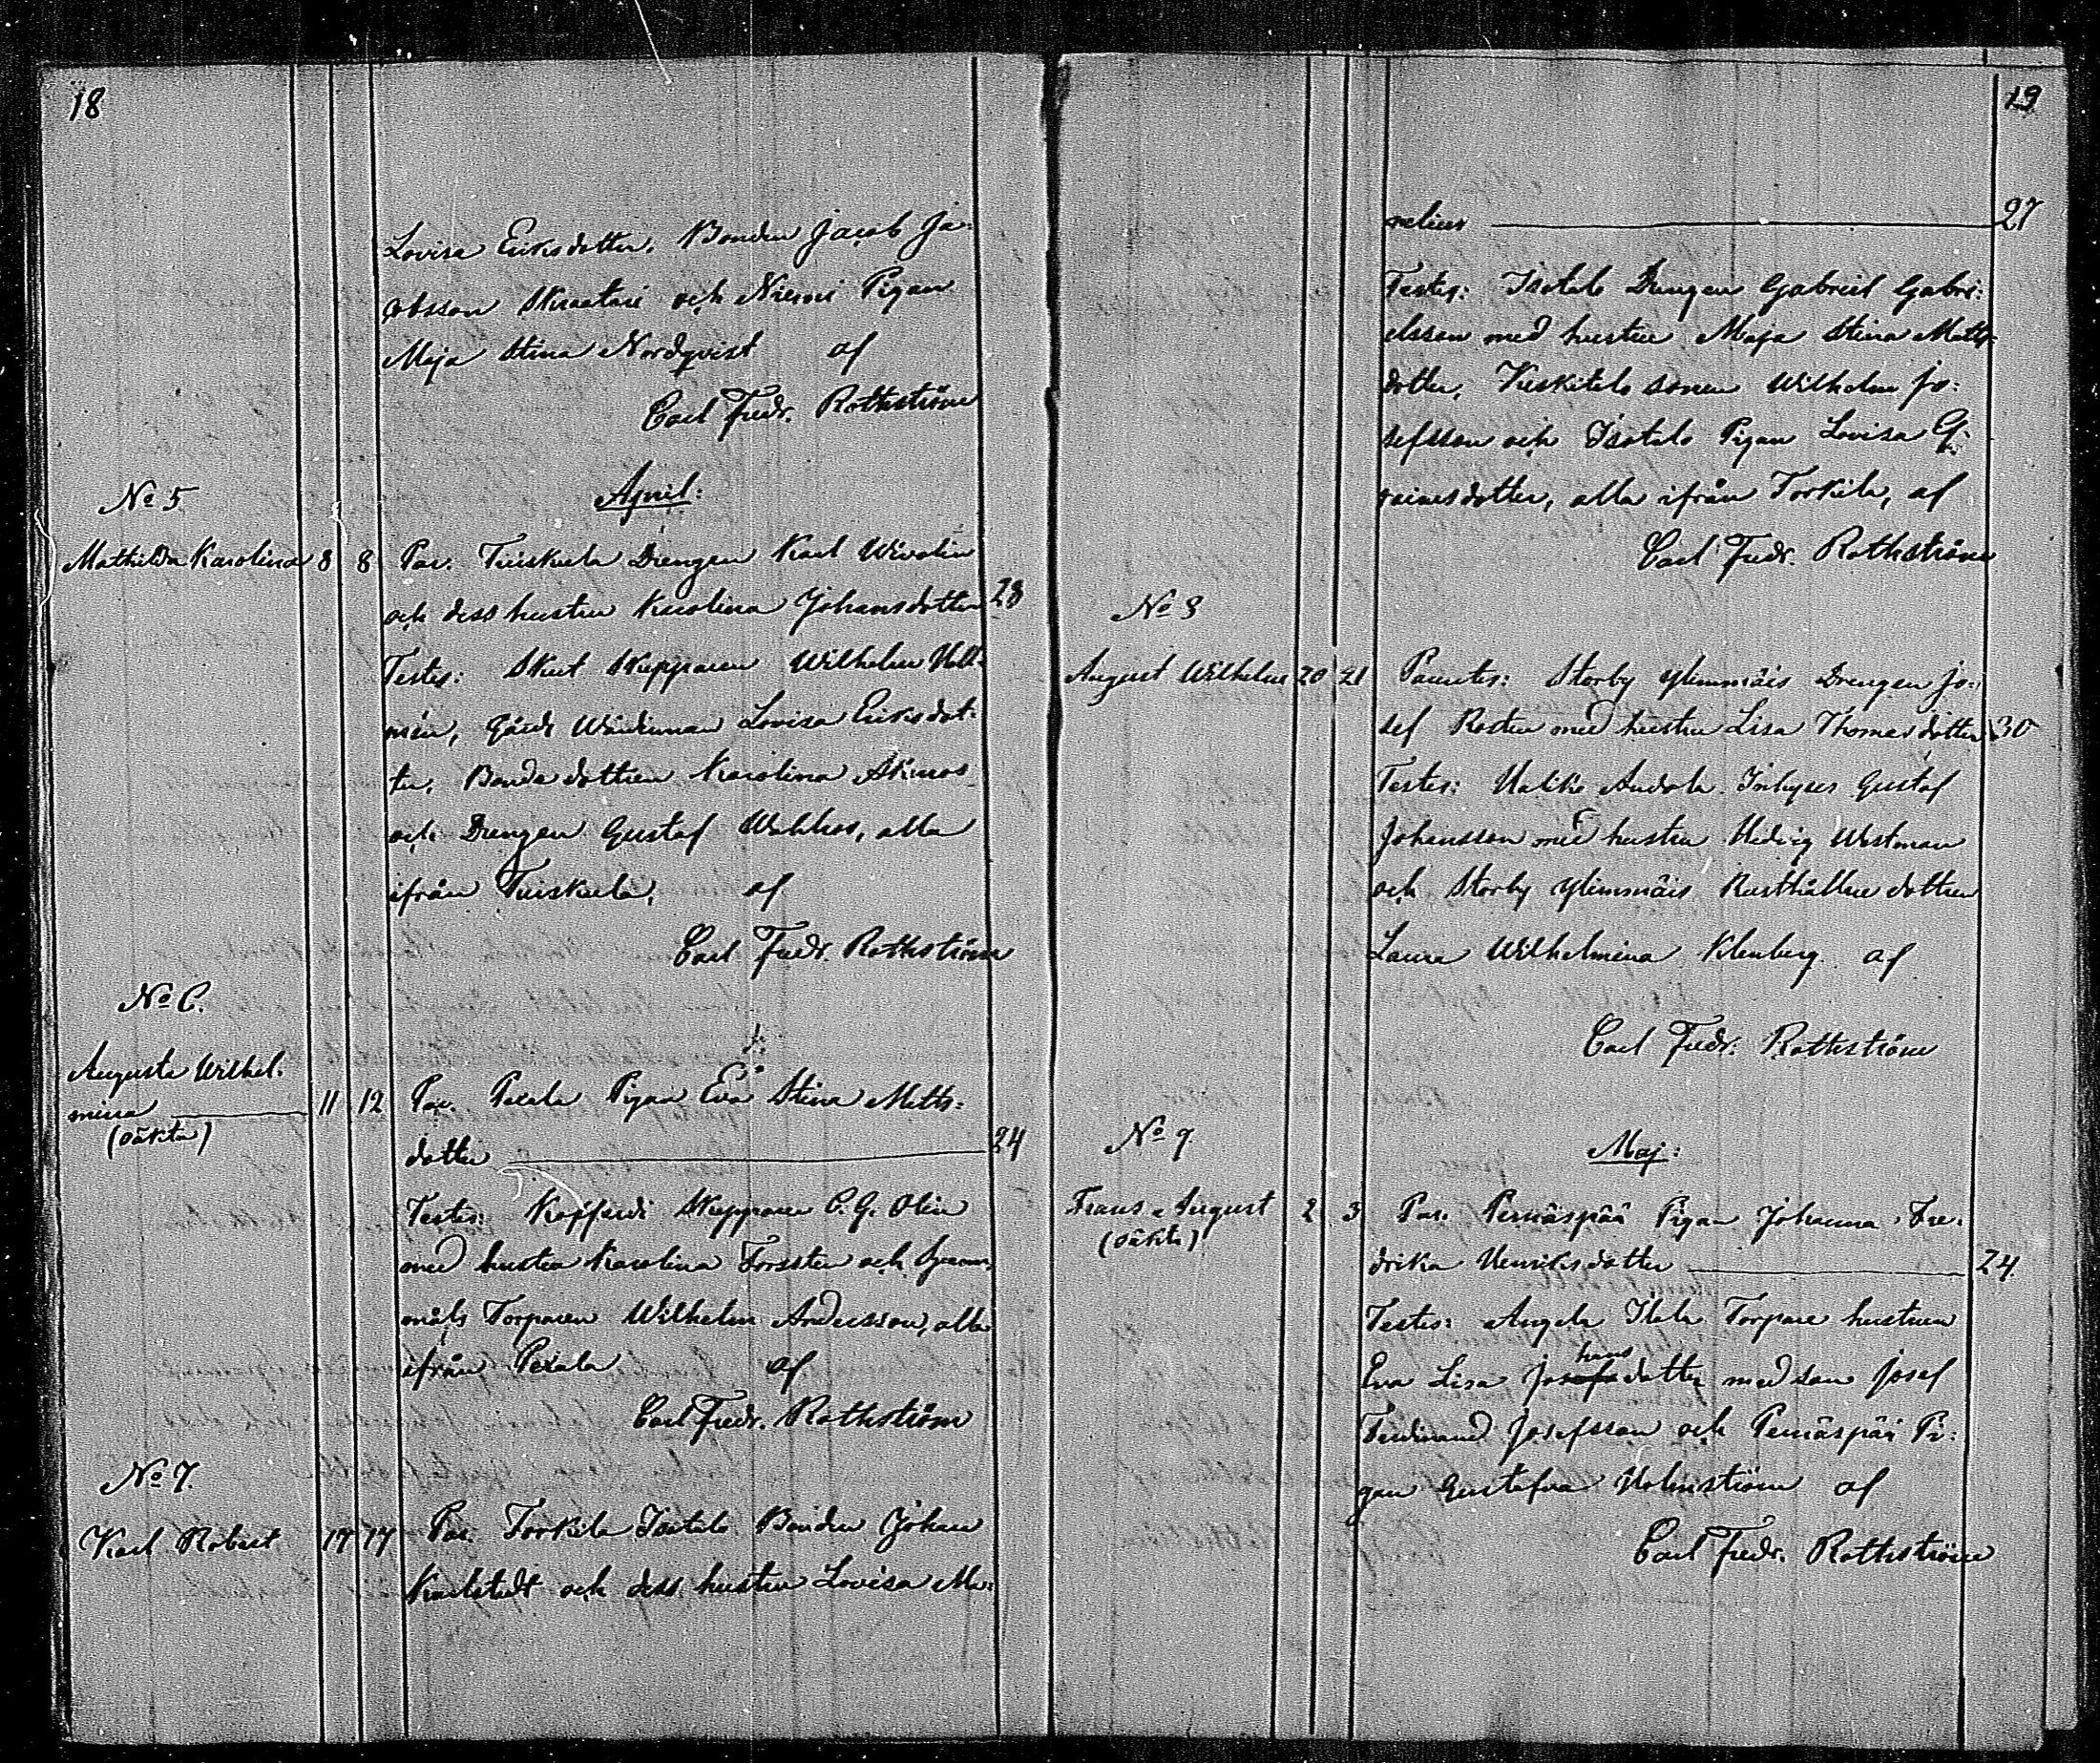 18
Lovisa Eriksdotter, Bonden Jacob Ja-
cobsson Skraatari och Niemi Pigan
Maja Stina Nordqvist af
Carl Fredr. Rothström
April:
No 5
Mathilda Karolina 8 8 Par. Tuiskula Drengen Karl Wivolin
och dess hustru Karolina Johansdotter 28
Testes: Skut Skepparen Wilhelm
Gårds Wärdinnan Lovisa Eriksdot-
ter, Bonda dottren Karolina
och Drengen Gustaf alla
ifrån Tuiskula, af
Carl Fredr. Rothström
No 6.
Augusta Wilhel-
mina 11 12 Par. Pigan Eva Stina Matts-
(oäkta)
dotter 24
Testes: Koffardi Skepparen C. G. Olin
med hustru Karolina Forssten och
Torparen Wilhelm Andersson, alla
ifrån af
Carl Fredr. Rothström
No 7.
Karl Robert 17 17 Par. Torkila Isotalo Bonden Johan
Karlstedt och dess hustru Lovisa
19
nelius 27
Testes: Isotalo Drengen Gabriel Gabri-
elsson med hustru Maja Stina Matts-
dotter, Keskitalo sonen Wilhelm Jo-
sefsson och Isotalo Pigan Lovisa
dotter, alla ifrån Torkila, af
Carl Fredr. Rothström
No 8
August Wilhelm 20 21 Parentes: Storby Ylimmäis Drengen Jo-
sef Rosten med hustru Lisa Thomasdotter 30
Testes: Inhyses Gustaf
Johansson med hustru Hedvig Westman
och Storby Ylimmäis Rusthållare dottren
Laura Wilhelmina Klenberg af
Carl Fredr. Rothström
No 9.
Maj:
Frans August 2 3 Par. Pernäspää Pigan Johanna Fre-
(oäkta)
drika Henriksdotter 24.
Testes: Angela Torpare hustrun
hans
Eva Lisa Josefsdotter med son Josef
Ferdinand Josefsson och Pernäspää Pi-
gan Gustafva Holmström af
Carl Fredr. Rothström